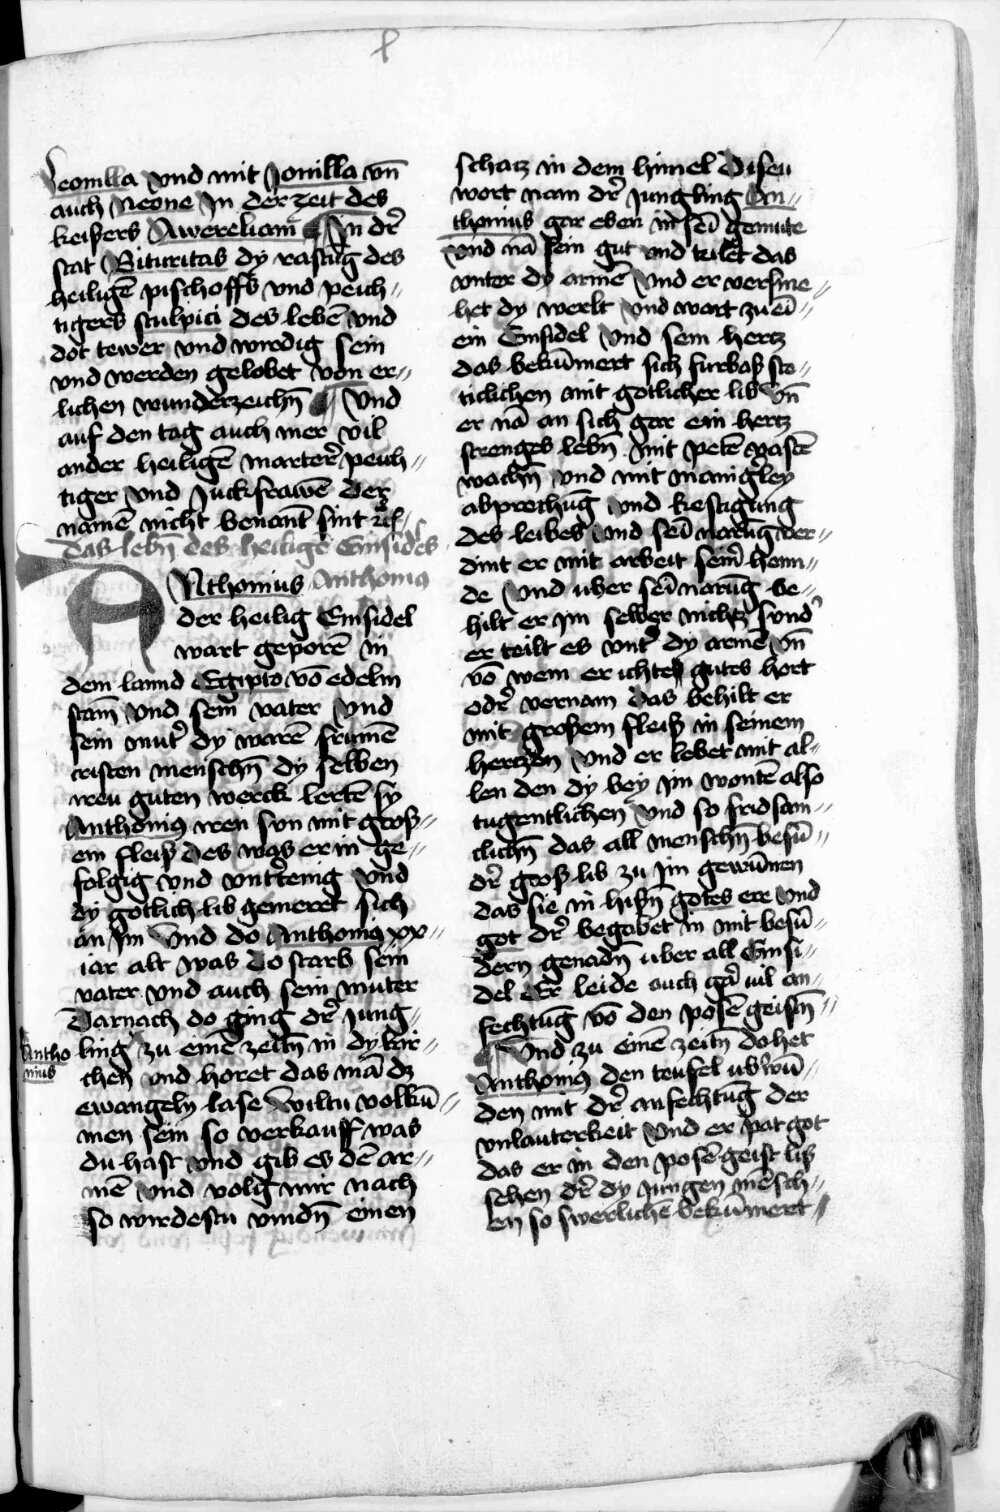 Leonilla vnd mit Jonilla vn̄
auch Neone In der zeit des
keisers Awreliani In dr̄
stat Bituritas dy rastūg des
heiligē pischoffs vnd peich„
tigers sculpici des lebē vnd
dot tewer vnd wirdig sein
vnd werden gelobet von er„
lichen wunderzeichn̄ Vnd
auf den tag auch mer vil
ander heiligē marterer̄ peich„
tiger vnd Juckfrawē der
namē nicht benant sint
Das lebn̄ des heilige Einsidels
Anthonius
ANthonius
der heilig Einsidel
wart geporē in
dem lannd Egipto vō edelm
stam̄ vnd sein vater vnd
sein mut̄ dy warē frumē
cristen menschn̄ dy selben
iren guten werck lertē sy
Anthonius iren sun mit gros„
em fleiß des was er in ge„
folgig vnd vnt̄tenig vnd
dy gotlich lib gemeret sich
an Im Vnd do Anthonius xx„
iar alt was do starb sein
vater vnd auch sein muter
Darnach do ging dr̄ Jung„
Antho
nius
ling zu einē zeitn̄ in dy kir„
chen vnd horet das mā dz
ewangely lase Wiltu volkū„
men sein so verkauff was
du hast vnd gib es dē ar„
mē vnd volg mir nach
so wirdestu vindn̄ einen
schatz in dem himel Disew
wort nam dr̄ Jungling An„
thonius gar eben in sei̅ gemute
vnd nā sein gut vnd teilet das
vnter dy armē Vnd er versme„
het dy werlt vnd wart zu ei̅„
ein Einsidel Vnd sein hertz
das bekūmert sich furbaß ste„
ticlichen mit gotlicher lib Vn̄
er nā an sich gar ein hertz
strenges lebn̄ mit petē vastē
wachn̄ vnd mit manigley
abprechūg vnd kestigung
des leibes Vnd sei̅ narūg ver„
dint er mit arbeit seinr̄ henn„
de Vnd uber sei̅ narūg be„
hilt er im selber nichtz sund̄
er teilt es vnt̄ dy armē Vn̄
vō wem er ichtes gutes hort
odr̄ vernam das behilt er
mit großem fleiß in seinem
hertzen Vnd er lebet mit al„
len den dy bey im wontē also
tugentlichen vnd so fridsam„
clichn̄ das all menschn̄ besū„
dr̄ groß lib zu im gewūnen
das sie in hisn̄ gotes ere Vnd
got dr̄ begabet in mit besū„
dern genadn̄ uber all Einsi„
del Er leide auch gar̄ vil an„
fechtūg vō den posē geistn̄„
Vnd zu einē zeitn̄ do het
Anthonius den teufel ub̄wū„
den mit dr̄ anfechtūg der
vnlauterkeit Vnd er pat got
das er in den posē geist liß
sehen dr̄ dy jungen mēsch„
en so swerlichē bekūmeret